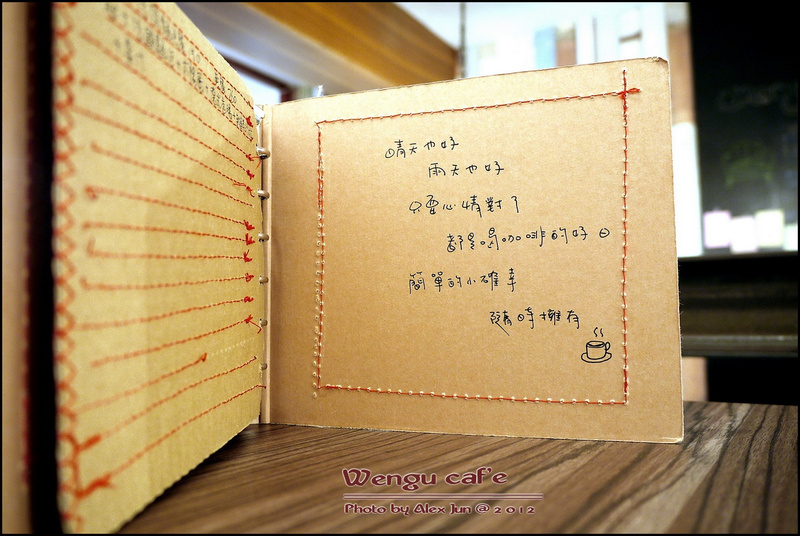 晴天也好
雨天也好
只要心情對了
都是喝咖啡的好日
簡單的小確幸
隨時擁有
Wengu caf'e
Photo by Alex Jun @ 2012